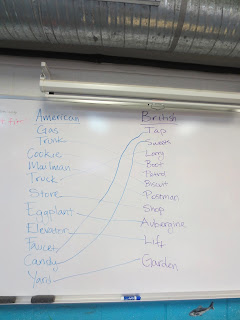 American
Gas
Trunk
Cookie
Mailman
Truck
Store
Eggplant
Elevator
Faucet
Candy
Yard
British
Tap
Sweets
Lorry
Boot
Petrol
Biscuit
Postman
Shop
Aubergine
Lift
Garden